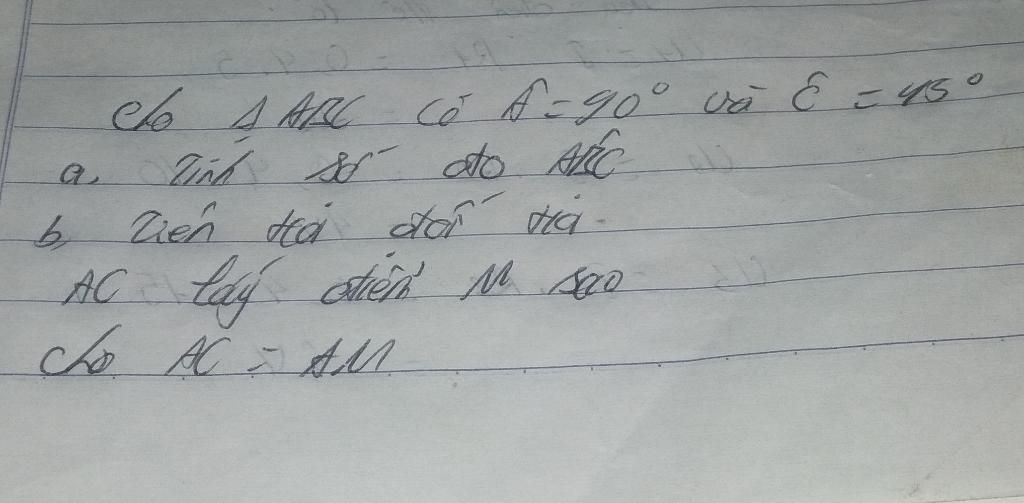 Cho Δ ABC có Â = 90° và Ĉ = 45°
a, Tính số đo ABC
b, Trên tia đối tia
AC lấy điểm M sao
cho AC = AM